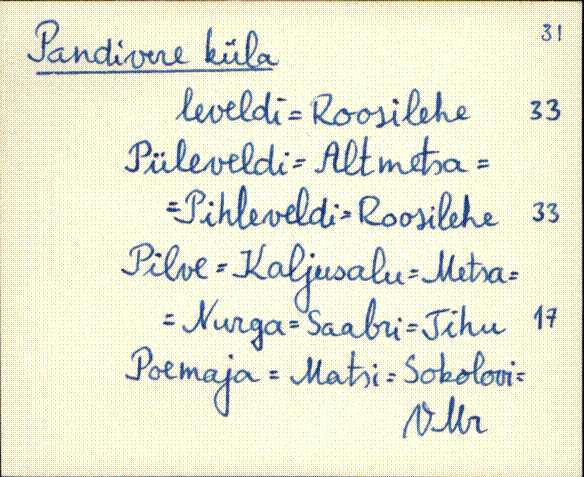 31
Pandivere küla
leveldi = Roosilehe 33
Püleveldi = Altmetsa =
= Pihleveldi = Roosilehe 33
Pilve = Kaljusalu = Metsa =
= Nurga = Saabri = Tihu 17
Poemaja = Matsi = Sokolovi =
VMr